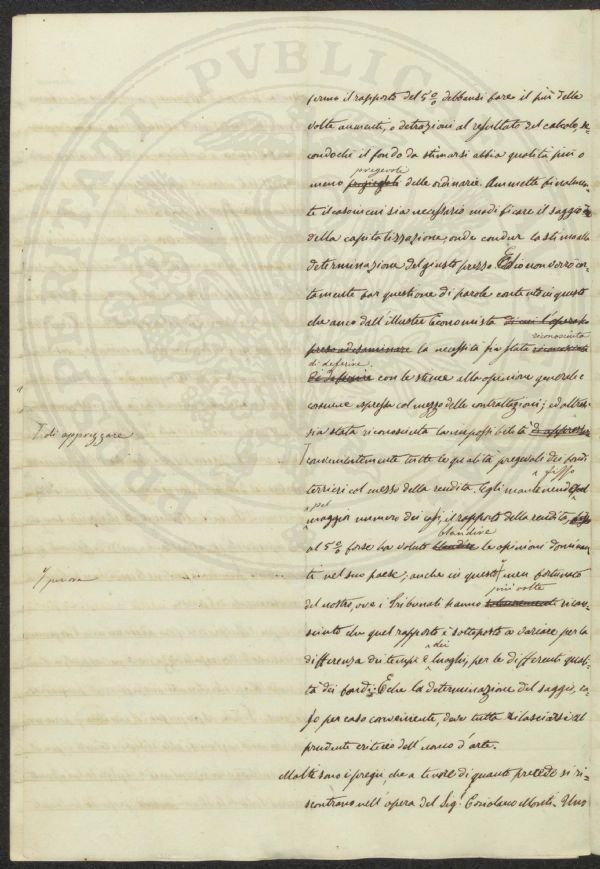 fermo il rapporto del 5 % debbansi fare il più delle
volte aumenti, o detrazioni al resultato del calcolo se-
condochè il fondo da stimarsi abbia qualità più o
pregevoli
meno delle ordinarie. Ammette finalmen-
te il caso in cui sia necessario modificare il saggio
della capitalizzazione, onde condur la stima alla
determinazione del giusto prezzo. Ed io non verrò cer-
tamente per questione di parole contento in questo
che anco dall'illustre Economista di cui l'opera ho
riconosciuta
preso ad esaminare la necessità sia stata riconosciuta
di deferire
di deferire con le stime alla opinione generale e
comune espressa col mezzo delle contrattazioni; ed altres-
sia stata riconosciuta la impossibilità di apprezzar
di apprezzare
convenientemente tutte le qualità pregevoli dei fondi
fisso
terrieri col mezzo della rendita. Egli mantenendo
pel
maggior numero dei casi, il rapporto della rendita,
blandire
al 5 % forse ha voluto blandire le opinioni dominan-
te nel suo paese; anche in questo men fortunato
per ora
più volte
del nostro, ove i Tribunali hanno ricono-
sciuto che quel rapporto è sottoposto a variare per la
dei
differenza dei tempi e luoghi, per le differenti quali-
tà dei fondi: E che la determinazione del saggio, ca-
so per caso conveniente, deve tutta rilasciarsi al
prudente criterio dell'uomo d'arte.
Molti sono i pregi, che a tenore di quanto precede si ri-
scontrano nell'opera del Sig. Coriolano Monti. Uno